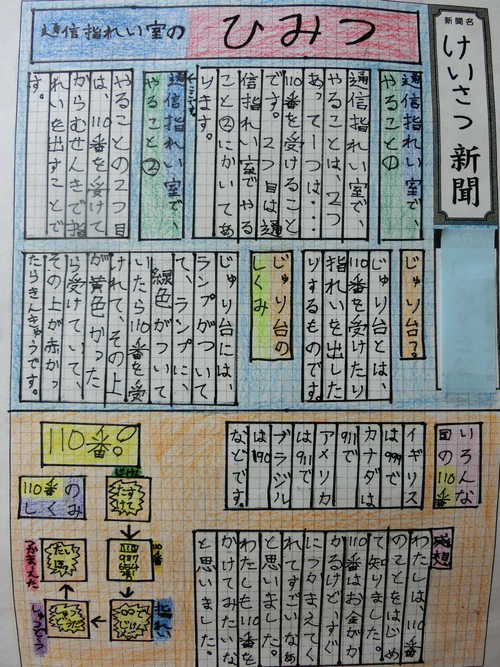 新聞名
けいさつ新聞
通信指れい室の
ひみつ
通信指れい室で、
やること①
通信指れい室で、
やることは、2つ
あって1つは…
110番を受けること
です。2つ目は通
信指れい室でやる
こと②にかいてあ
ります。
通信指れい室で、
やること②
やることの2つ目
は、110番を受けて
からむせんで指
れいを出すことで
す。
じゅり台って。
じゅり台とは、
110番を受けたり
指れいを出した
りするものです。
じゅり台の
しくみ
じゅり台には、
ランプがついて
て、ランプに、
緑色がついて
いたら110番を受
けれて、その上
が黄色かった
ら受けていて、
その上が赤かっ
たらきんきゅうです。
いろんな
国の110番
イギリス
は999で
カナダは
911で
アメリカ
は911で
ブラジル
は190
などです。
感想
わたしは、110番
のことをはじめ
て知りました。
110番はお金がか
かるけど、すぐ
につかまえてく
れてすごいなぁ
と思いました。
わたしも110番を
かけてみたいな
と思いました。
110番。
110番の
しくみ
たす
けて
110番
指れい
じけん
しゅつどう
たいほ